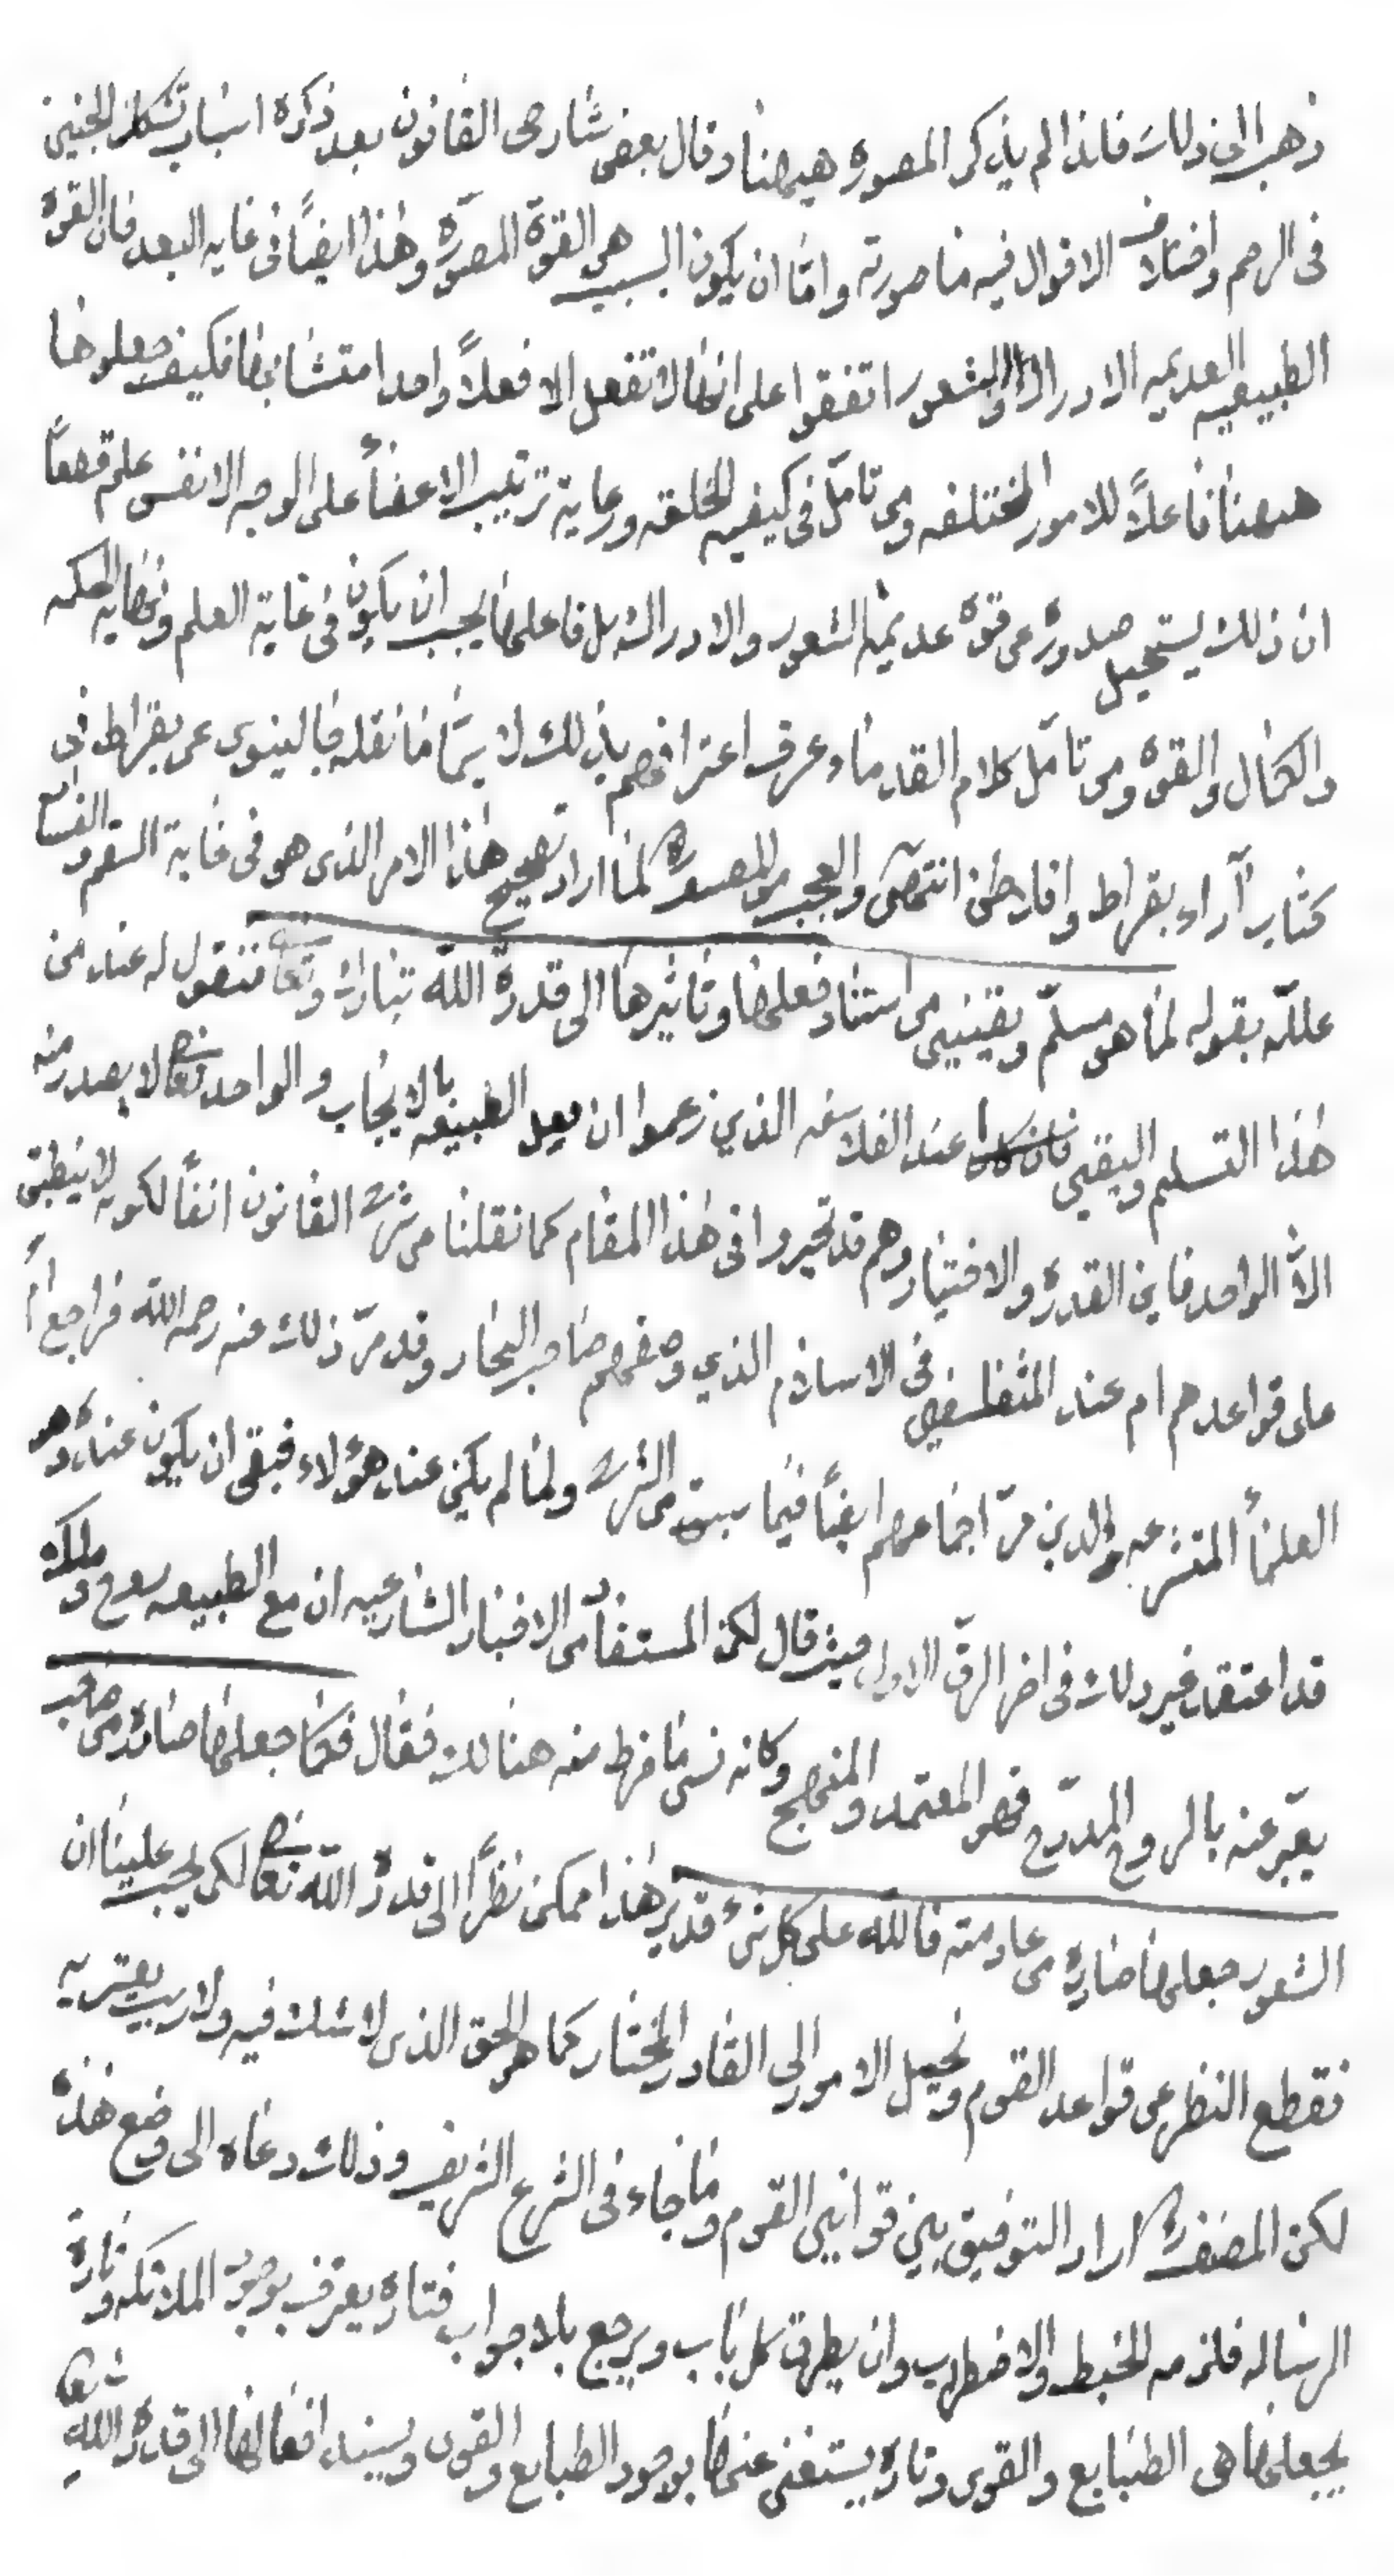 ذهب الى ذلك فلذا لم يذكر المصوره هيهنا وقال بعض شارحى القانون بعد ذكره اسباب تشكل الجنين
فى الرحم واختلاف الاقوال فيه ما صورته واما ان يكون السبب هى القوة المصوره وهذا ايضاً فى غايه البعد فان القوه
الطبيعيه العديمه الادراك والشعور اتفقوا على انها لا تفعل الا فعلاً واحدا متشابها فكيف جعلوها
ههنا فاعلاً للامور المختلفه ومن تامّل فى كيفيه الخلقه ورعاية ترتيب الاعضاء على الوجه الانفس علم قطعاً
ان ذلك يستحيل صدوره عن قوه عديمة الشعور والادراك بل فاعلها يجب ان يكون فى غاية العلم ونهايه الحكمه
والكمال والقوه ومن تامّل كلام القدماء عرف اعترافهم بذلك لا سيّما ما نقله جالينوس عن بقراط فى
كتاب آراء بقراط وافلاطن انتهى والعجب من المصنف لما اراد تصحيح هذا الامر الذى هو فى غاية السقم والفساد
علّله بقوله لما هو مسلّم ويقينى من استناد فعلها وتاثيرها الى قدرة الله تبارك وتعا فنقول له عند من
هذا التسلم واليقين فان كان عند الفلاسفه الذين زعموا ان فعل الطبيعه بالايجاب والواحد تعا لا يصدر منه
الاّ الواحد فاين القدرة والاختيار وهم قد تحيروا فى هذا المقام كما نقلنا من شرح القانون انفاً لكونه لا ينطبق
على قواعدهم ام عند المتفلسفين فى الاسلام الذين وصفهم صاحب البحار وقد مرّ ذلك عنه رحمه الله فراجع ام
العلماء المتشرعه والذين مرّ اجماعهم ايضاً فيما سبق من الشرح ولما لم يكن عند هؤلاء فبقى ان يكون عنده وهو
قد اعتقد غير ذلك فى اخر الرق الاول حيث قال لكن المستفاد من الاخبار الشارعيه ان مع الطبيعه روح وملك
يعبّر عنه بالروح المدبّره فهو المعتمد والمنهج وكانه نسى ما فرط منه هنالك فقال فكما جعلها صادره من صاحب
الشعور جعلها صادره من عادمته فالله على كل شىء قدير هذا ممكن نظراً الى قدرة الله تعا لكن يجب علينا ان
نقطع النظر عن قواعد القوم ونحيل الامور الى القادر المختار كما هو الحق الذى لا شك فيه ولا ريب يعتريه
لكن المصنف اراد التوفيق بين قوانين القوم وما جاء فى الشرع الشريف وذلك دعاه الى وضع هذه
الرساله فلزمه الخبط والاضطراب وان يطرق كل باب ويرجع بلا جواب فتاره يعترف بوجود الملائكه وتارة
يجعلها هى الطبايع والقوى وتاره يستغنى عنها بوجود الطبايع والقوى ويسند افعالها الى قدرة الله تعا